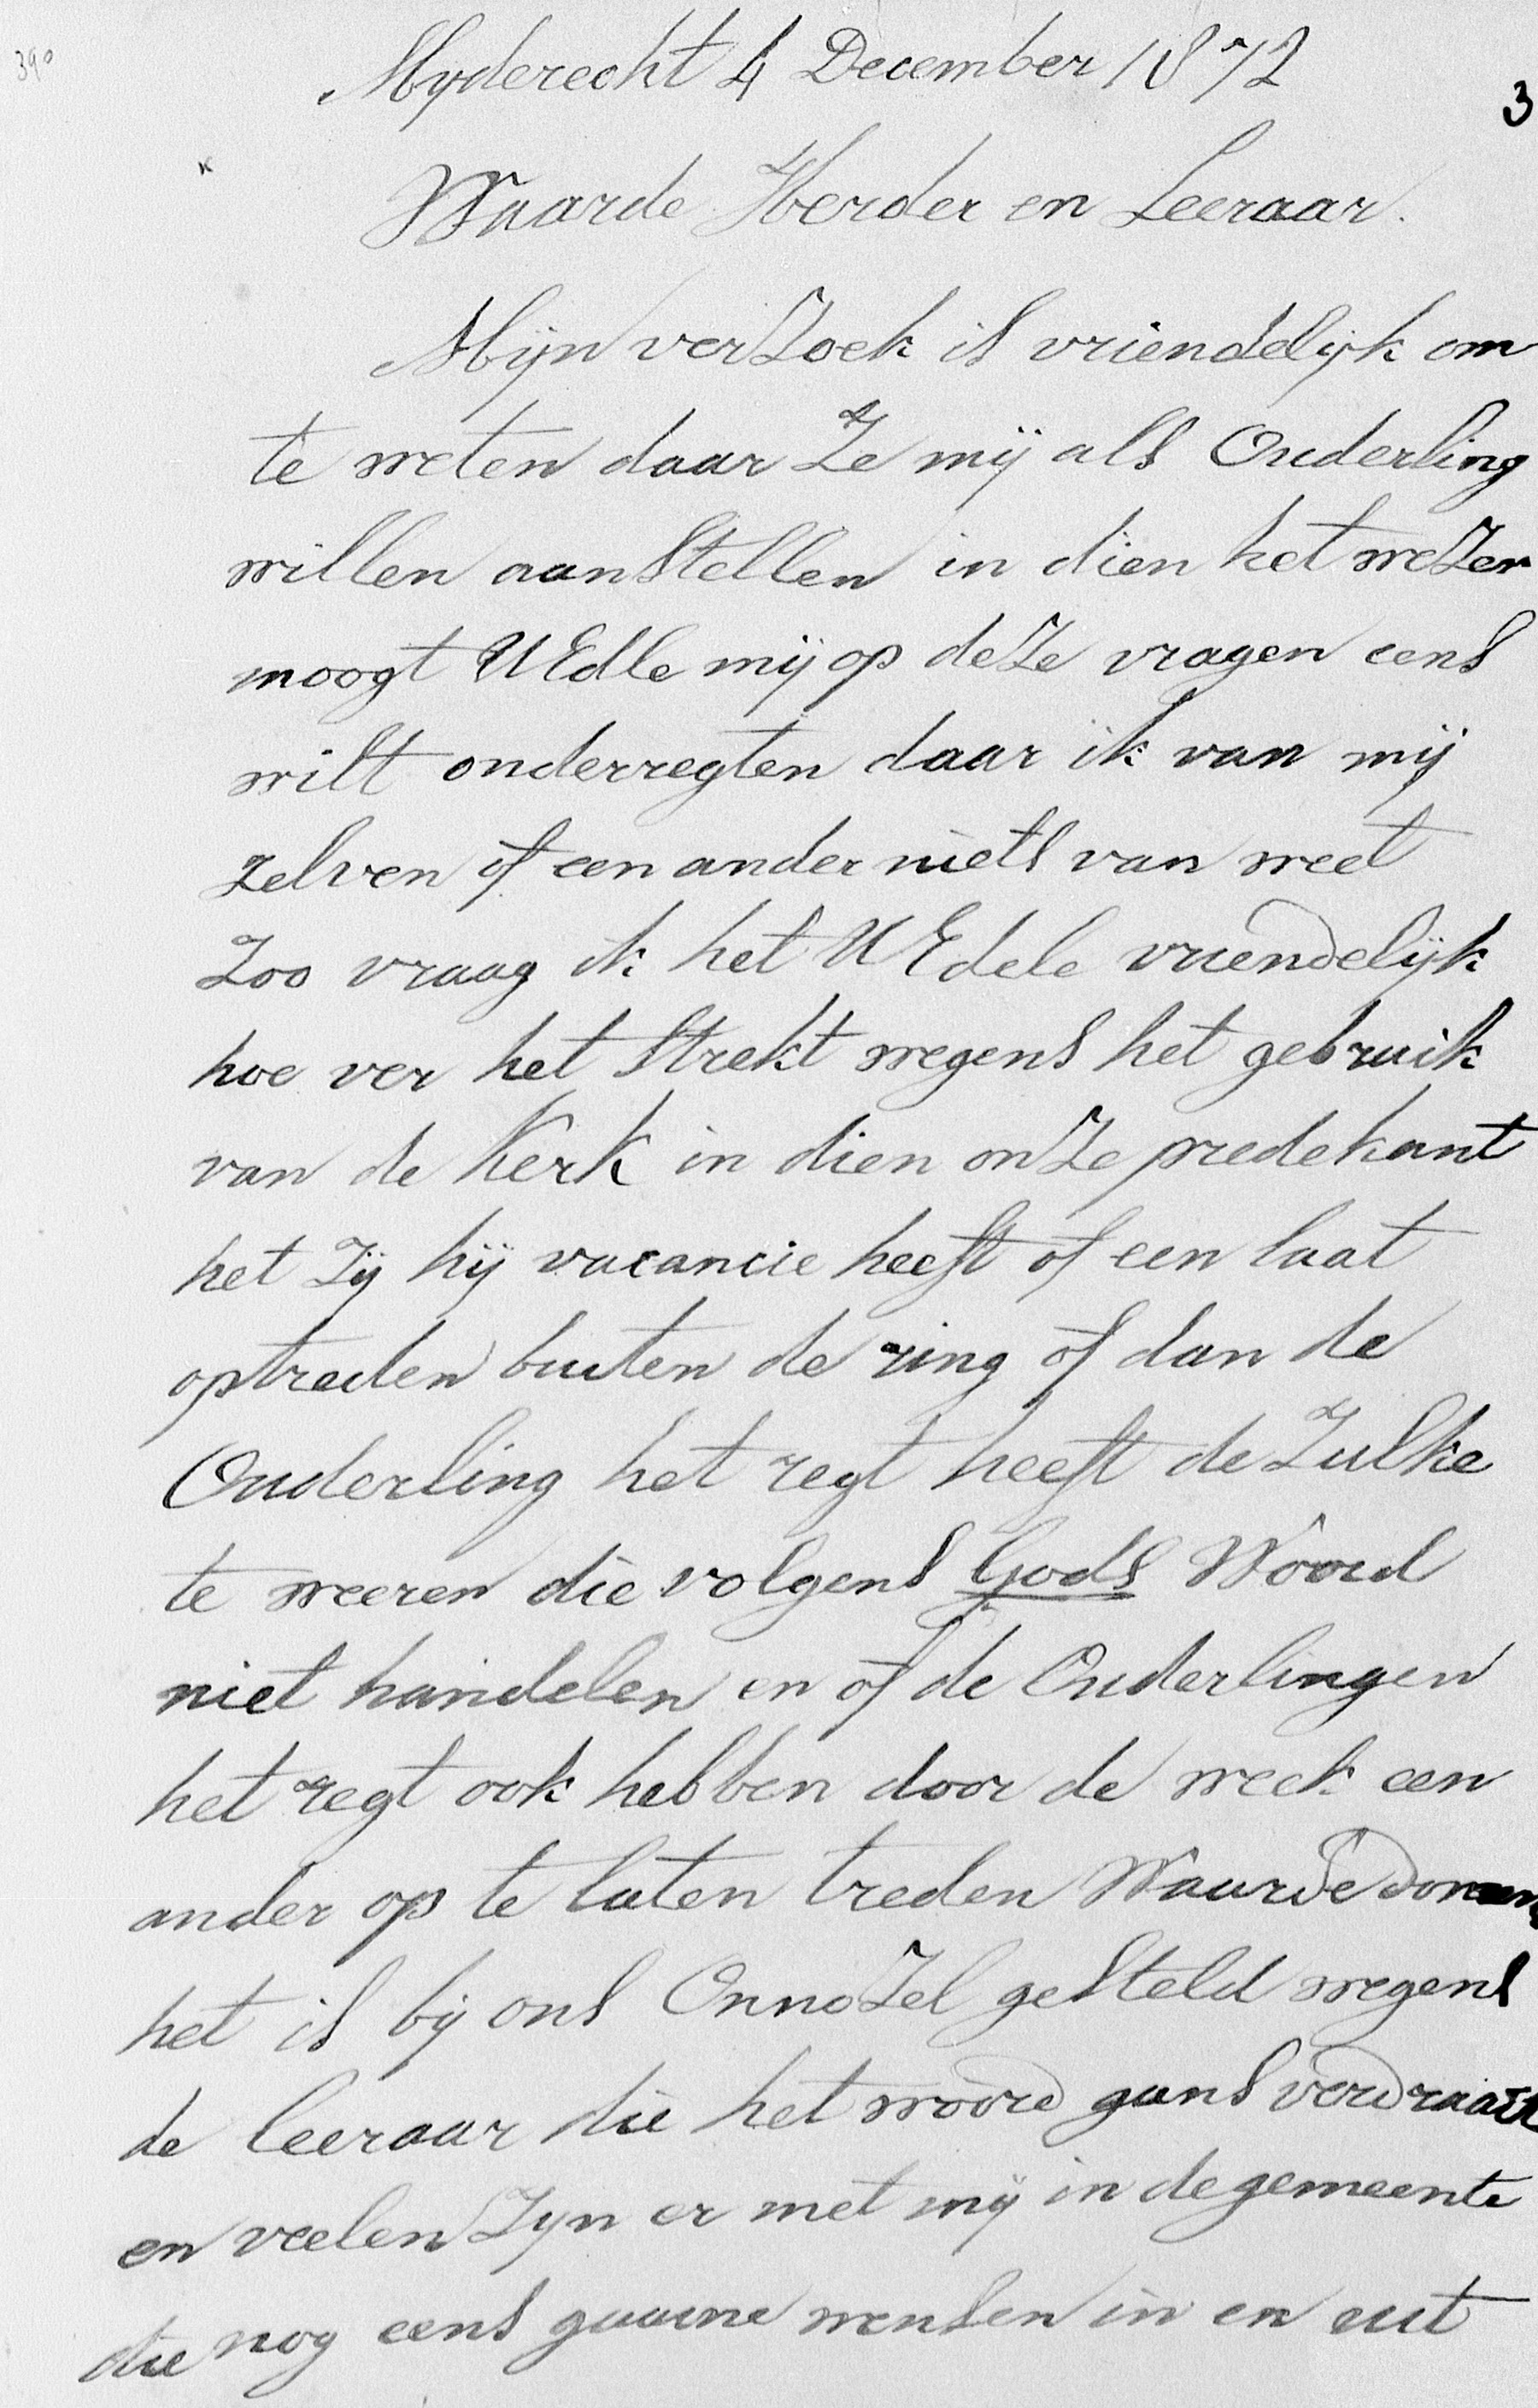 390
Myderecht 4 December 1872
3
Waarde Herder en Leeraar.
Mijn verzoek is vriendelijk om
te weten daar Ze mij als Ouderling
willen aanstellen in dien het wezen
moogt UEdle mij op deze vragen eens
wilt onderregten daar ik van mij
zelven of een ander niets van weet
Zoo vraag ik het UEdele vriendelijk
hoe ver het strekt wegens het gebruik
van de Kerk in dien onze predekant
het Zij hij vacancie heeft of een laat
optreden buiten de ring of dan de
Ouderling het regt heeft de Zulke
te weeren die volgens Gods Woord
niet handelen en of de Ouderlingen
het regt ook hebben door de week een
ander op te laten treden Waarde
het is bij ons Onnozel gesteld wegens
de leeraar die het woord gans verdraait
en veelen Zijn er met mij in de gemeente
die nog eens gaarne wensen in en uit